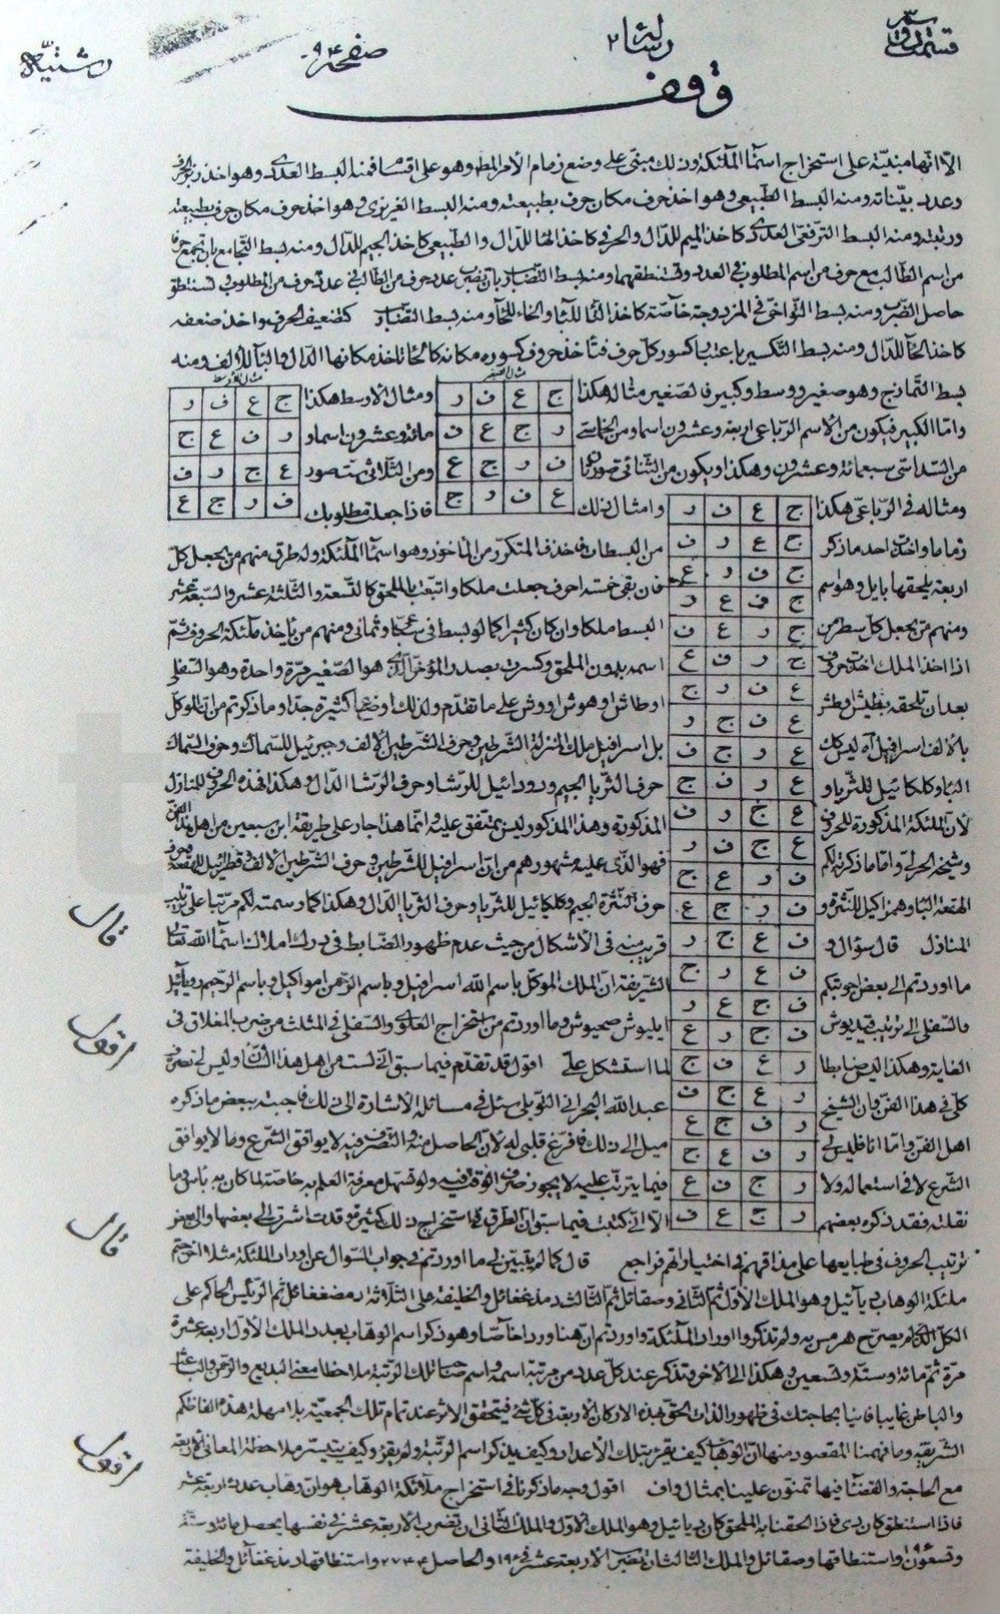 رسالة ٢
صفحه ٩٤
رشتية
وقف
الا انها مبنية على استخراج اسماء الملئكة وذلك مبنى على وضع زمام الأمر وهو على اقسام فمنه البسط العددى وهو اخذ
وعدد بيّناته ومنه البسط الطبيعى وهو اخذ حرف مكان حرف بطبيعته ومنه البسط الغريزى وهو اخذ حرف مكان حرف بطبيعته
ورتبته ومنه البسط الترفعى العددى كاخذ الميم للدال والحرفى كاخذ للدال والطبيعى كاخذ الجيم للدال ومنه بسط التجامع بان تجمع حرفا
من اسم الطالب مع حرف من اسم المطلوب فى العدد وتستنطقهما ومنه بسط التضارب بان تضرب عدد حرف من الطالب فى عدد حرف من المطلوب وتستنطق
حاصل الضرب ومنه بسط التواخى فى المزدوجة خاصة كاخذ التاء للباء والخاء للحاء ومنه بسط كتضعيف الحرف واخذ ضعفه
كاخذ الحاء للدال ومنه بسط التكسير باعتبار كسور كل حرف فتاخذ حروف كسوره مكانه كالحاء تاخذ مكانها الدال والباء والالف ومنه
بسط التمازج وهو صغير ووسط وكبير فالصغير مثاله هكذا
ج ع ف ر
ر ج ع ف
ف ر ج ع
ع ف ر ج
ومثال الاوسط هكذا
ج ع ف ر
ر ف ع ج
ع ج ر ف
ف ر ج ع
واما الكبير فيكون من الاسم الرباعى اربعة وعشرون اسما ومن الخماسى
مائة وعشرون اسما و
من السداسى سبعمائة وعشرون وهكذا ويكون من الثنائى
ومن الثلاثى ستة صور
ومثاله فى الرباعى هكذا
وامثال ذلك
فاذا جعلت مطلوبك
ج ع ف ر
ج ع ر ف
ج ف ر ع
ج ف ع ر
ج ر ع ف
ج ر ف ع
ع ف ر ج
ع ف ج ر
ع ر ج ف
ع ر ف ج
ع ج ر ف
ع ج ف ر
ف ر ع ج
ف ر ج ع
ف ع ج ر
ف ع ر ج
ف ج ع ر
ف ج ر ع
ر ع ف ج
ر ع ج ف
ر ف ج ع
ر ف ع ج
ر ج ف ع
ر ج ع ف
زماما واخذت احد ما ذكر من البسطات فاحذف المتكرر من الماخوذ وهو اسماء الملئكة وله طرق منهم من يجعل كل
اربعة يلحقها بايل وهو اسم فان بقى خمسة احرف جعلت ملكا واتبعت بالملحق كالتسعة والثلثة عشر والسبعة عشر
ومنهم من يجعل كل سطر من البسط ملكا وان كان كثيرا ومنهم من ياخذ ملئكة الحروف ثم
اذا اخذ الملك اخذت حروف اسمه بدون الملحق وكسرت بصدر المؤخر هو الصغير مرة واحدة وهو السفلى
بعد ان تلحقه بطيش او طش او طاش او هوش او وش على ما تقدم ولذلك اوضاع كثيرة جدا وما ذكرتم من ان الموكل
بالالف اسرافيل اه ليس كك بل اسرافيل ملك المنزلة الشرطين وحرف الشرطين الالف وجبرئيل للسماك وحرف السماك
الباء وكلكائيل للثريا و حرف الثريا الجيم ودردائيل للرشاء وحرف الرشاء الدال وهكذا فهذه الحروف للمنازل
لان الملئكة المذكورة للحروف المذكورة وهذا المذكور ليس بمتفق عليه وانما هذا جار على طريقة ابن سبعين من اهل هذا الفن
وشيخه الحرالى واما ما ذكرته لكم فهو الذى عليه مشهورهم من ان اسرافيل للشرطين وحرف الشرطين الالف
الهقعة الباء وهمزاكيل للنثرة و حرف النثرة الجيم وكلكيائيل للثريا وحرف الثريا الدال وهكذا كما رسمته لكم مرتبا على ترتيب
المنازل قال سؤال و قريب منه فى الاشكال من حيث عدم ظهور الضابط فى درك املاك اسماء الله تعالى
ما اوردتم الى بعض اجوبتكم الشريفة ان الملك الموكل باسم الله اسرافيل وباسم الرحمن امواكيل وباسم الرحيم رويائيل
والسفلى الى ترتيب ايليوش صحيوش وما اوردتم من استخراج العلوى والسفلى فى المثلث من ضرب المغلاق فى
الغاية وهكذا ليس ضابطا لما استشكل على اقول قد تقدم فيما سبق انى لست من اهل هذا الشان وليس لى تصرف
كلى فى هذا الفن وان الشيخ عبد الله البحرانى التوبلى سئل فى مسائله الاشارة الى ذلك فاجبته ببعض ما ذكره
اهل الفن واما انا فليس لى ميل الى ذلك فافرغ قلبى له لان الحاصل منه والتصرف فيه لا يوافق الشرع وما لا يوافق
الشرع لا فى استعماله ولا فيما يترتب عليه لا يجوز صرف الوقت فيه ولو تسهل معرفة العلم به خاصة لما كان به باس وما
نقلته فقد ذكره بعضهم الا انى كتبت فيما سبق ان الطرق فى استخراج ذلك كثيرة وقد اشرت الى بعضها والى بعض
ترتيب الحروف فى طبايعها على مذاقهم فى اختياراتهم فراجع قال كما لم يتبين لى ما اوردتم فى جواب السؤال عن اوراد الملئكة مثلا اخرجتم
ملئكة الوهاب ديائيل وهو الملك الاول ثم الثانى وصقائيل ثم الثالث ذمذغغائل والخليفة على الثلاثة ثم الرئيس الحاكم على
الكل الذى لم يصرح هرمس به ولم تذكروا اوراد الملئكة واوردتم ان هنا وردا خاصا وهو ذكر اسم الوهاب بعدد الملك الاول اربعة عشرة
مرة ثم مائة وستة وتسعين وهكذا الى الاخر وتذكر عند كل عدد من مرتبة اسمه واسم صاحب تلك الرتبة ملاحظا معنى البديع والرحمن والباعث
والباطن غايبا فانيا بحاجتك فى ظهور الذات الحق بهذه الاركان الاربعة فى كل شىء فيتحقق الاثر عند تمام تلك الجمعية بلا مهلة هذه الفاظكم
الشريفة وما فهمنا المقصود منها ان الوهاب كيف يقرء بتلك الاعداد وكيف يذكر اسم الرتبة ولم يقرء وكيف يتيسر ملاحظة المعانى الاربعة
مع الحاجة والفناء فيها تمنون علينا بمثال واف اقول وجه ما ذكرنا فى استخراج ملائكة الوهاب هو ان وهاب عدده اربعة عشر
فاذا استنطق كان يد فاذا الحقنا به الملحق كان ديائيل وهو الملك الاول والملك الثانى ان تضرب الاربعة عشر فى نفسها يحصل مائة وستة
وتسعون ١٩٦ واستنطاقها وصقائل والملك الثالث ان تضرب الاربعة عشر فى ١٩٦ والحاصل ٢٧٤٤ واستنطاقها دمذغغائل والخليفة
قال
اقول
قال
اقول